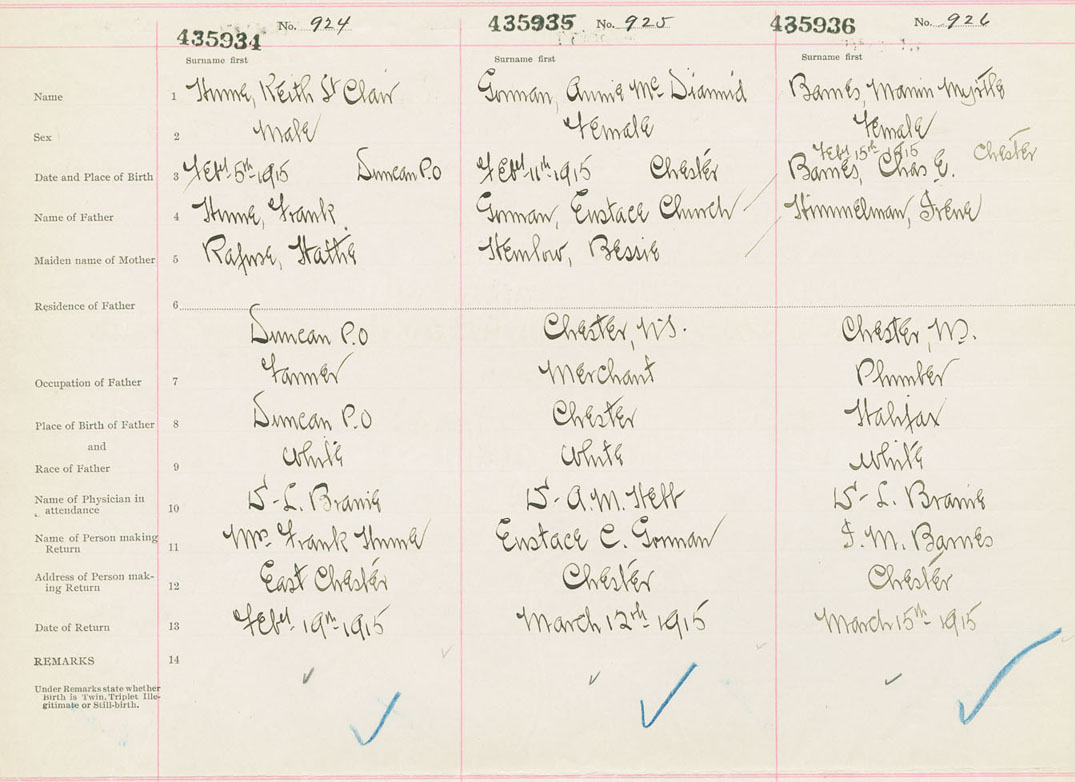 435934 No. 924
Surname first
435935 No. 925
Surname first
435936 No. 926
Surname first
Name 1 Hume, Keith St Clair
Gorman, Annie Mc Diarmid
Barnes, Marvin Myrtle
Sex 2 Male
Female
Female
Date and Place of Birth 3 Feby 5th 1915 Duncan P.O
Feby 11th 1915 Chester
Feby 15th 1915 Chester
Barnes, Chas E.
Name of Father 4 Hume, Frank
Gorman, Eustace Church
Himmelman, Irene
Maiden name of Mother 5 Rafuse, Hattie
Hemlow, Bessie
Residence of Father 6
Duncan P.O
Chester, NS.
Chester, NS.
Occupation of Father 7 Farmer
Merchant
Plumber
Place of Birth of Father 8 Duncan P.O
Chester
Halifax
and
Race of Father 9 White
White
White
Name of Physician in
attendance 10 D- L. Branie
D- A.M. Hebb
D- L. Branie
Name of Person making
Return 11 Mrs Frank Hume
Eustace C. Gorman
I. M. Barnes
Address of Person mak-
ing Return 12 East Chester
Chester
Chester
Date of Return 13 Feby 19th 1915
March 12th 1915
March 15th 1915
REMARKS 14
Under Remarks state whether
Birth is Twin, Triplet Ille-
gitimate or Still-birth.